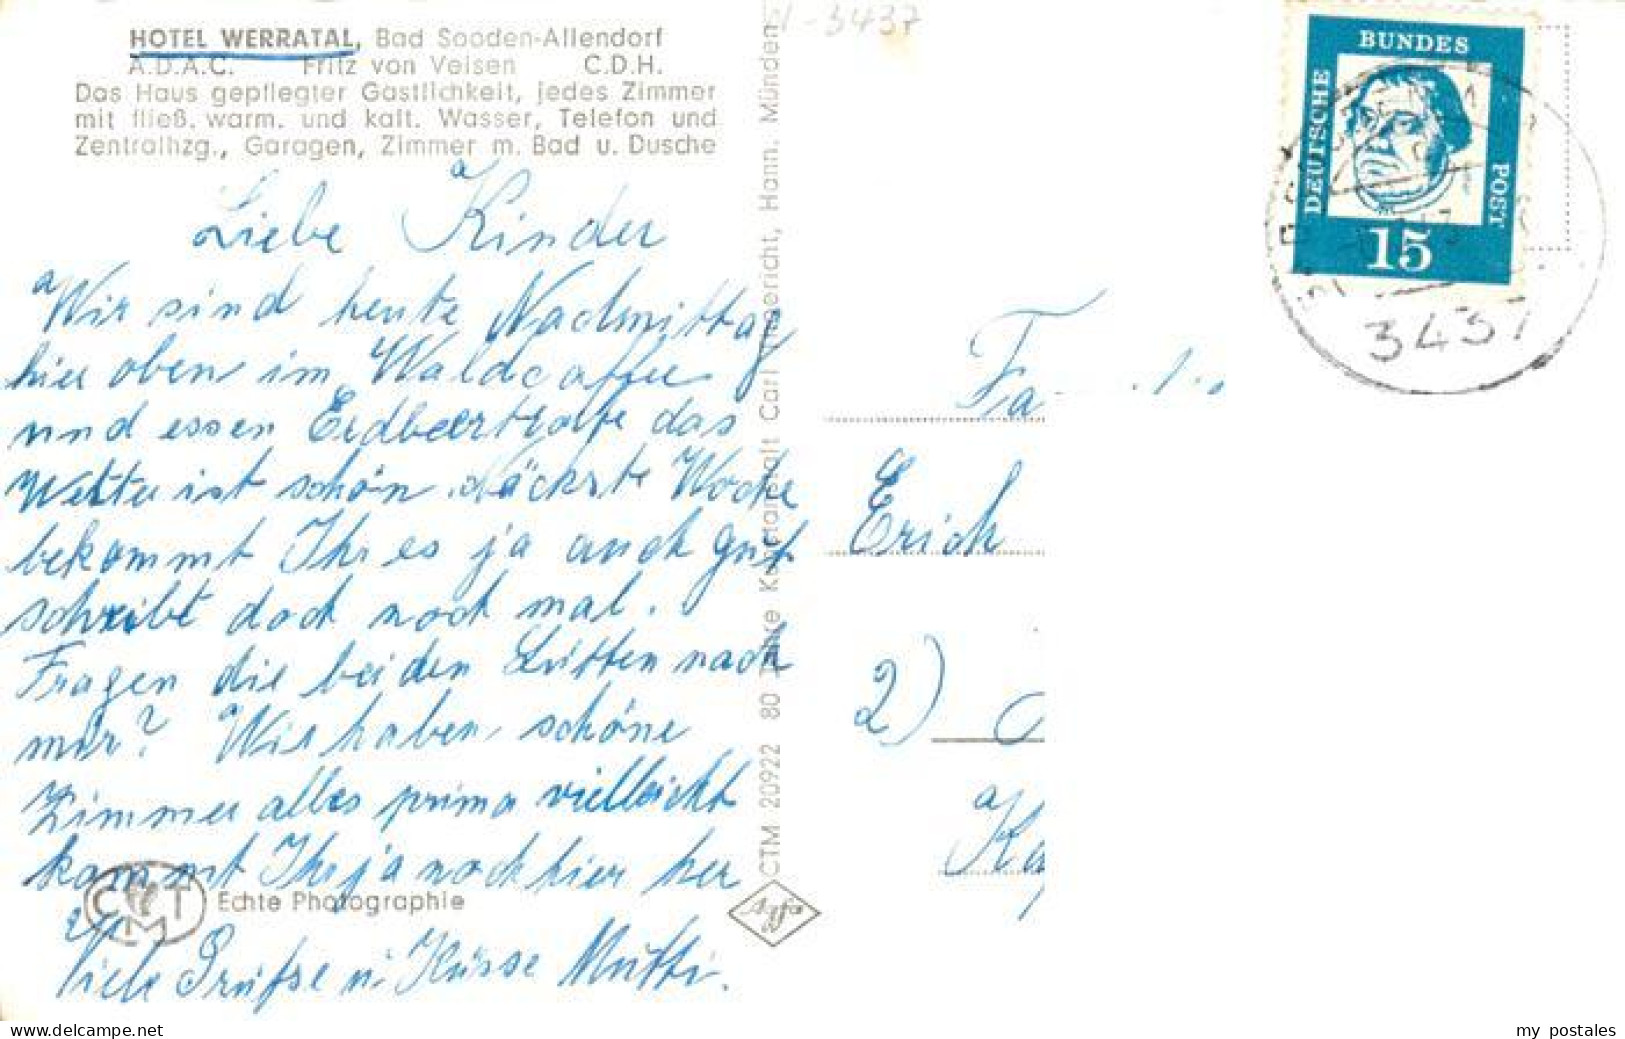 HOTEL WERRATAL, Bad Sooden-Allendorf
A.D.A.C. Fritz von Velsen C.D.H.
Das Haus gepflegter Gastlichkeit, jedes Zimmer
mit fließ. warm. und kalt. Wasser, Telefon und
Zentralhzg., Garagen, Zimmer m. Bad u. Dusche
Liebe Kinder
Wir sind heute Nachmittag
hier oben im Waldcaffee
und essen Erdbeertorte das
Wetter ist schön. Nächste Woche
bekommt Ihr es ja auch gut
schreibt doch noch mal.
Fragen die beiden nach
mir? Wir haben schöne
Zimmer alles prima vielleicht
kommt Ihr ja noch hier her
Viele Grüße u. Küsse Mutti.
Echte Photographie
CTM 20922 80 Jahre Kunstanstalt Carl Thoericht, Hann. Münden
Agfa
CMT
3437
BUNDES
DEUTSCHE
POST
15
3437
Erich
2)
delcampe.net
my postales